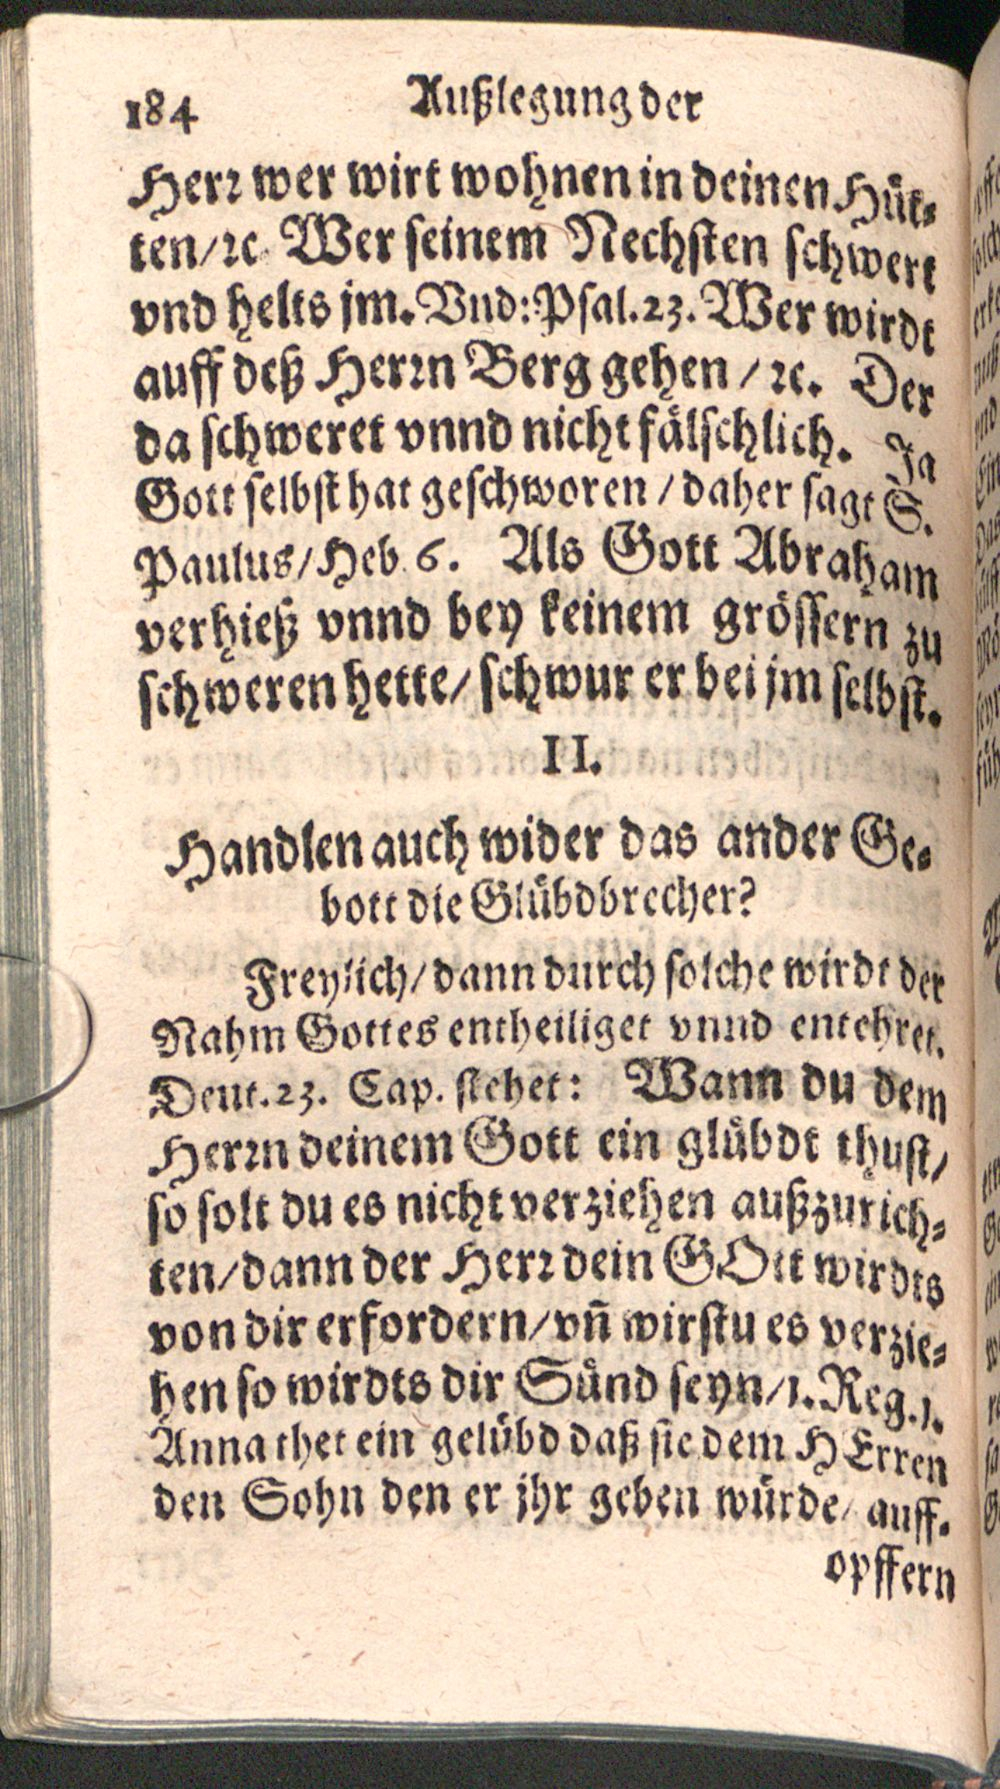 184 Außlegung der
Herr wer wirt wohnen in deinen Hüt-
ten/ꝛc Wer seinem Nechsten schwert
vnd helts jm. Vnd: Psal. 23. Wer wirdt
auff deß Herrn Berg gehen / ꝛc. Der
da schweret vnnd nicht fälschlich. Ja
Gott selbst hat geschworen / daher sagt S.
Paulus/Heb 6. Als Gott Abraham
verhieß vnnd bey keinem grössern zu
schweren hette/ schwur er bei jm selbst.
II.
Handlen auch wider das ander Ge-
bott die Glübdbrecher?
Freylich/ dann durch solche wirdt der
Nahm Gottes entheiliget vnnd entehret.
Deut. 23. Cap. stehet: Wann du dem
Herrn deinem Gott ein glübdt thust/
so solt du es nicht verziehen außzurich-
ten/dann der Herr dein GOtt wirdts
von dir erfordern/vñ wirstu es verzie-
hen so wirdts dir Sünd seyn/1. Reg. 1.
Anna thet ein gelübd daß sie dem HErren
den Sohn den er jhr geben würde/ auff-
opffern